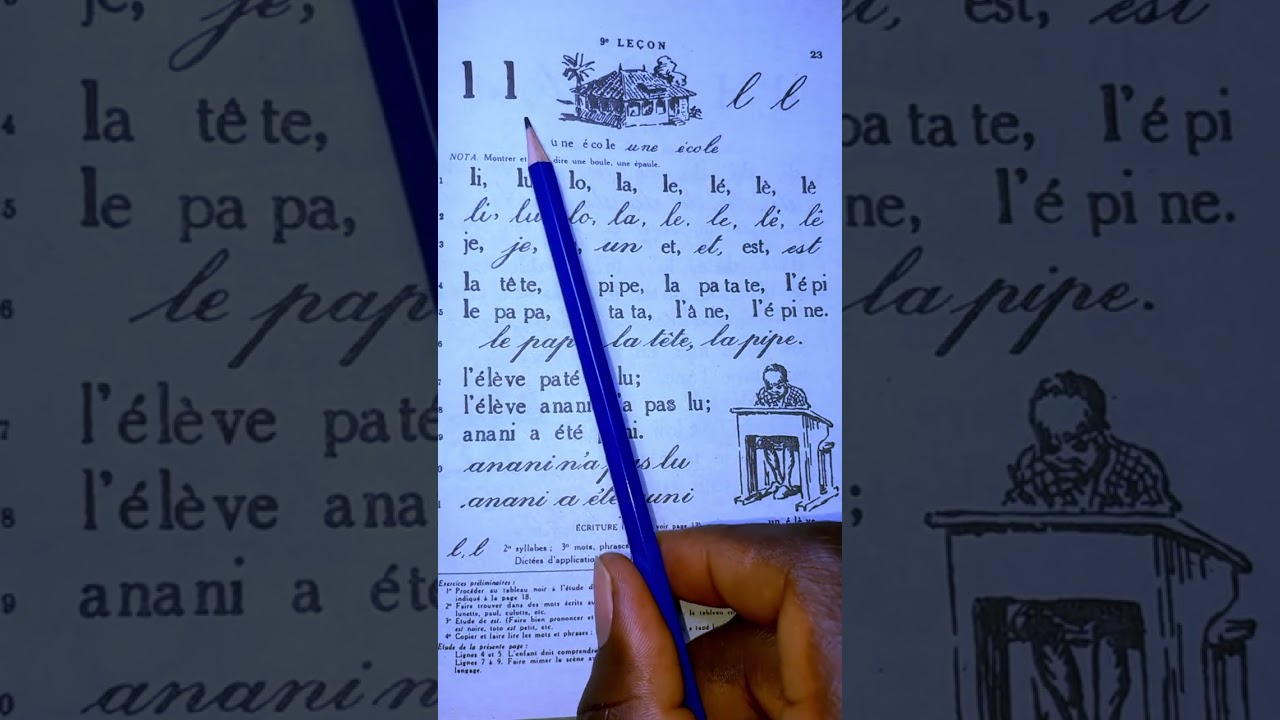 9e LEÇON
23
l l
l l
une école une école
NOTA. Montrer et dire une boule, une épaule.
1 li, lu lo, la, le, lé, lè, lê
2 li, lu lo, la, le, le, lé, lê
3 je, je, un et, et, est, est
4 la tête, pipe, la patate, l'épi
5 le papa, tata, l'âne, l'épine.
6 le pap la tête, la pipe.
7 l'élève paté lu;
8 l'élève anani n'a pas lu;
9 anani a été puni.
anani n'a pas lu
anani a été puni
un élève
ÉCRITURE voir page
l, l 2° syllabes ; 3° mots, phrases
Dictées d'application
Exercices préliminaires :
1° Procéder au tableau noir à l'étude
indiqué à la page 18.
2° Faire trouver dans des mots écrits au le tableau
lunette, paul, culotte, etc.
3° Étude de est. (Faire bien prononcer et
est noire, toto est petit, etc.
4° Copier et faire lire les mots et phrases :
Étude de la présente page :
Lignes 4 et 5. L'enfant doit comprendre
Lignes 7 à 9. Faire mimer la scène
langage.